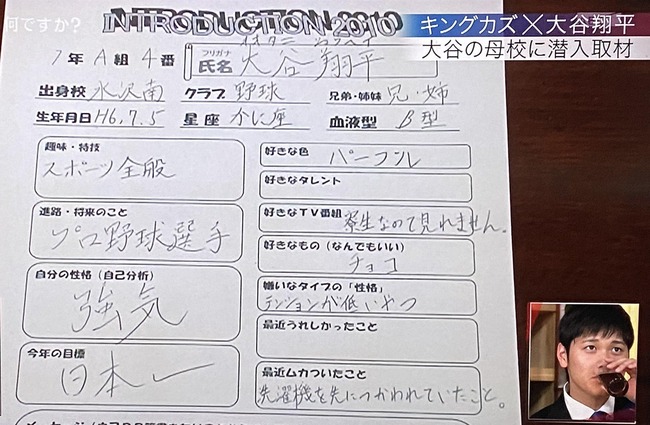 何ですか?
INTRODUCTION 2010
キングカズ×大谷翔平
大谷の母校に潜入取材
1年A組4番
フリガナ オオタニ ショウヘイ
氏名 大谷 翔平
出身校 水沢南 クラブ 野球 兄弟・姉妹 兄・姉
生年月日 H6.7.5 星座 かに座 血液型 B型
趣味・特技
スポーツ全般
進路・将来のこと
プロ野球選手
自分の性格(自己分析)
強気
今年の目標
日本一
好きな色
パープル
好きなタレント
好きなTV番組
寮生なので見れません。
好きなもの(なんでもいい)
チョコ
嫌いなタイプの「性格」
テンションが低いやつ
最近うれしかったこと
最近ムカついたこと
洗濯機を先につかわれていたこと。